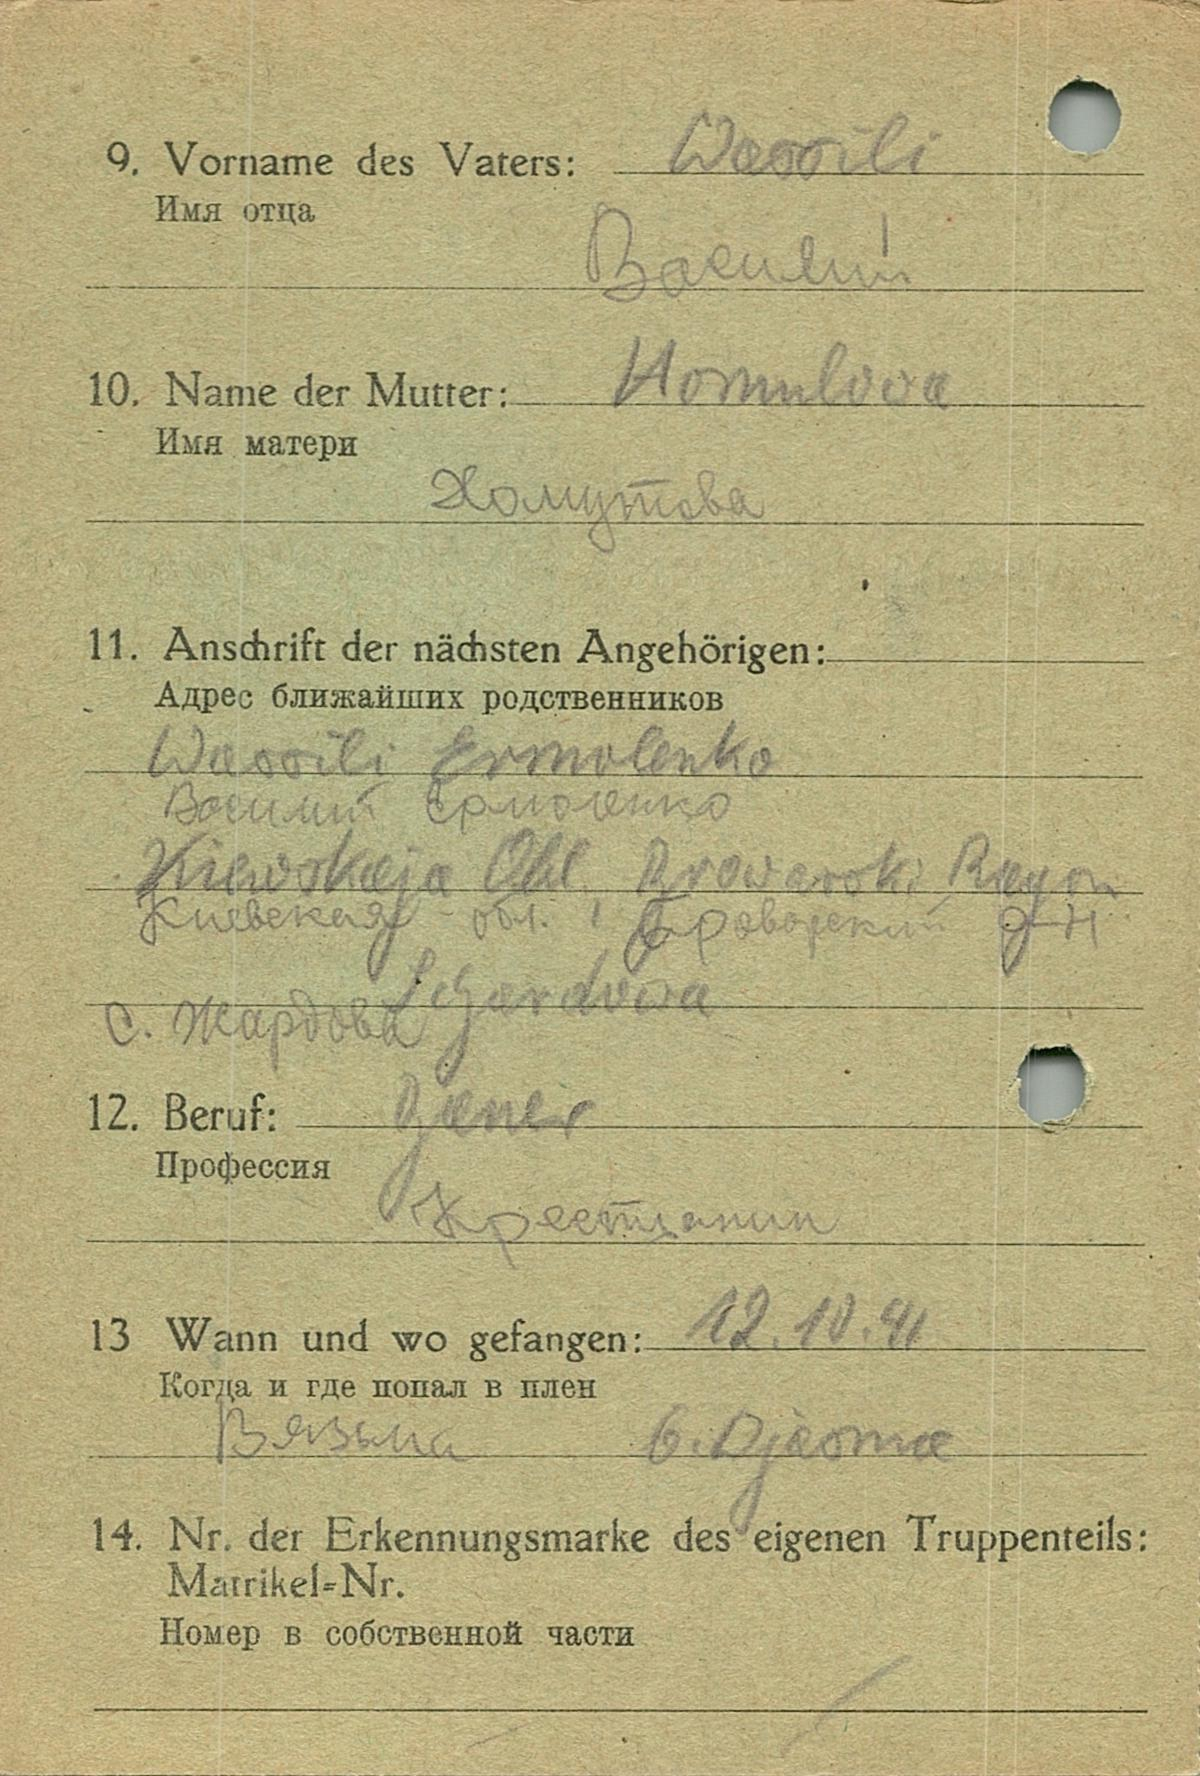 9. Vorname des Vaters: Wassili
Имя отца
Василий
10. Name der Mutter: Homulowa
Имя матери
Хомутова
11. Anschrift der nächsten Angehörigen:
Адрес ближайших родственников
Wassili Ermolenko
Василий Ермоленко
Kiewskaja Obl. Browarski Rayon
Киевская обл. Броварский р-н
Schardowa
с. Жардова
12. Beruf:
Профессия
Крестянин
13 Wann und wo gefangen: 12.10.41
Когда и где попал в плен
Вязьма b. Wjasma
14. Nr. der Erkennungsmarke des eigenen Truppenteils:
Matrikel=Nr.
Номер в собственной части